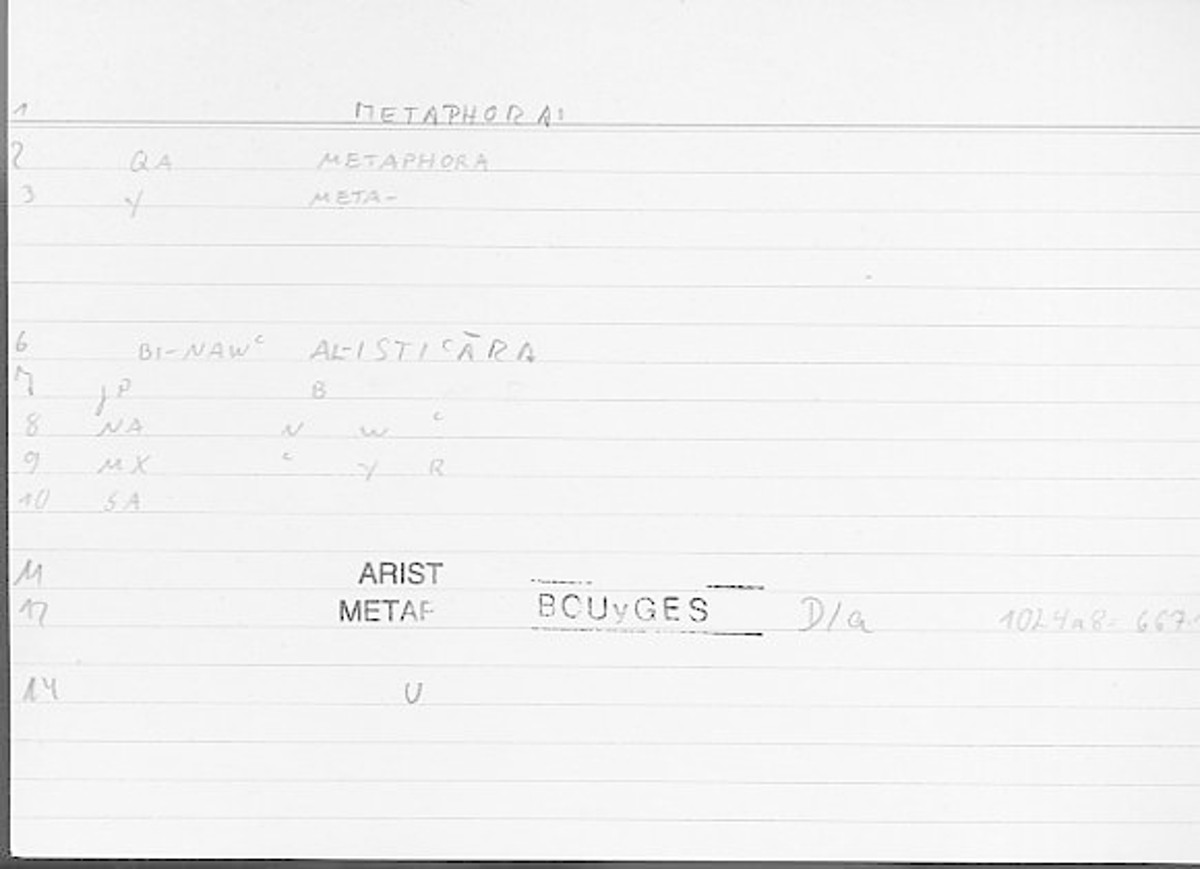 1 METAPHORAI
2 QA METAPHORA
3 Y META-
6 BI-NAWᶜ AL-ISTIᶜĀRA
7 jP B
8 NA N W ᶜ
9 MX ᶜ Y R
10 SA
11 ARIST
12 METAF BOUYGES D/a 1024a8= 667.1
14 U